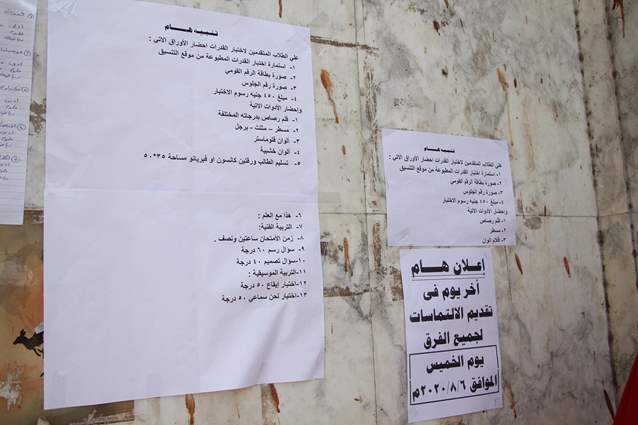 تنبيه هـــام
علي الطلاب المتقدمين لاختبار القدرات احضار الأوراق الاتي :
١- استمارة اختبار القدرات المطبوعة من موقع التنسيق
٢- صورة بطاقة الرقم القومي
٣- صورة رقم الجلوس
٤- مبلغ ٤٥٠ جنيه رسوم الاختبار
واحضار الأدوات الاتية
١- قلم رصاص بدرجاته المختلفة
٢- مسطر – مثلث – برجل
٣- ألوان فلوماستر
٤- ألوان خشبية
٥- تسليم الطالب ورقتين كانسون أو فبريانو مساحة ٣٥.٥٠
٦- هذا مع العلم :
٧- التربية الفنية:
٨- زمن الأمتحان ساعتين ونصف .
٩- سؤال رسم ٦٠ درجة
١٠- سؤال تصميم ٤٠ درجة
١١- التربية الموسيقية :
١٢- اختبار إيقاع ٥٠ درجة
١٣- اختبار لحن سماعي ٥٠ درجة
تنبيه هـــام
علي الطلاب المتقدمين لاختبار القدرات احضار الأوراق الاتي :
١- استمارة اختبار القدرات المطبوعة من موقع التنسيق
٢- صورة بطاقة الرقم القومي
٣- صورة رقم الجلوس
٤- مبلغ ٤٥٠ جنيه رسوم الاختبار
واحضار الأدوات الاتية
١- قلم رصاص
٢- مسطر
٣- اقلام الوان
إعلان هـــام
أخر يوم فى
تقديم الالتماسات
لجميع الفرق
يوم الخميس
الموافق ٢٠٢٠/٨/٦م